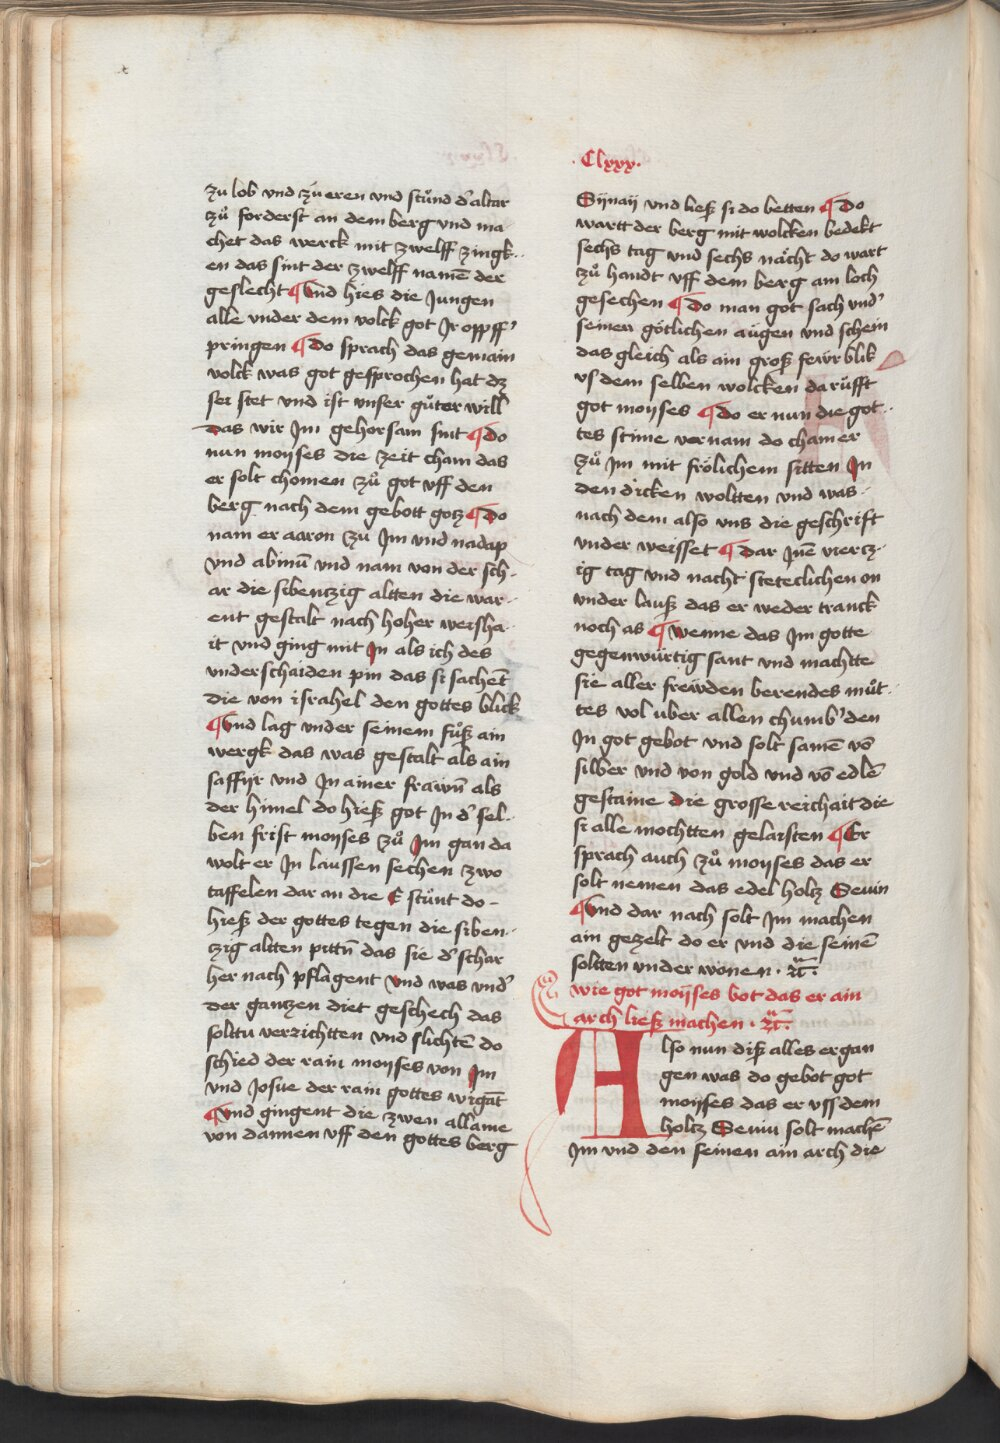 zu lob vnd zu eren vnd stuͦnd dˀ altar
zuͦ forderst an dem berg vnd ma
chet das werck mit zwelff zingk-
en das sint der zwelff namē der
geslecht ¶ Vnd hies die Jungen
alle vnder dem volck got Jr oppffˀ
pringen ¶ Do sprach das gemain
volck was got gesprochen hat dz
sei stet vnd ist vnser guͦter will
das wir Jm gehorsam sint ¶ Do
nun moyses die zeit cham das
er solt chomen zuͦ got vff den
berg nach dem gebott gotz ¶ Do
nam er aaron zu Jm vnd nadap
vnd abiuū vnd nam von der sch-
ar die sibenczig altten die war-
ent gestalt nach hoher weisha-
it vnd ging mit Jn als ich des
vnderschaiden pin das si sachēt
die von israhel den gottes blick
¶ Vnd lag vnder seinem fuͦß ain
wergk das was gestalt als ain
saffijr vnd Jn ainer frawn̄ als
der himel do hieß got Jn dˀ sel-
ben frist moyses zuͦ Jm gan da
wolt er Jn laussen sechen zwo
taffelen dar an die E stuͦnt do-
hieß der gottes tegen die siben-
czig altten pittn̄ das sie dˀ schar
her nach pflagent vnd was vndˀ
der gantzen diet geschech das
solttu verzichtten vnd slichtē do
schied der rain moyses von Jm
vnd Josue der rain gottes wigāt
¶ Vnd gingent die zwen allaine
von dannen vff den gottes berg
Clxxx.
Sijnaij vnd ließ si do betten ¶ Do
wartt der berg mit wolcken bedekt
sechs tag vnd sechs naͤcht do wart
zuͦ handt vff dem berg am loch
gesechen ¶ Do man got sach vndˀ
seinen goͤtlichen augen vnd schein
das gleich als ain groß fewr blik
vs dem selben wolcken da ruͤfft
got moyses ¶ Do er nun die got-
tes stime vernam do cham er
zuͦ Jm mit froͤlichem sitten Jn
den dicken woltten vnd was-
nach dem also vns die geschrift
vnder weisset ¶ Dar Jnē viercz-
ig tag vnd nacht steteclichen on
vnder lauß das er weder tranck
noch as ¶ Wenne das Jm gotte
gegenwuͤrtig sant vnd machtte
sie aller frewden berendes muͦt-
tes vol uber allen chumbˀden
Jn got gebot vnd solt samē vō
silber vnd von gold vnd vō edlē
gestaine die grosse reichait die
si alle mochtten gelaisten ¶ Er
sprach auch zuͦ moyses das er
solt nemen das edel holtz Sevin
¶ Vnd dar nach solt Jm machen
ain gezelt do er vnd die seinē
soltten vnder wonen · ꝛc̄ ·
wie got moyses bot das er ain
arch ließ machen · ꝛc̄ ·
Also nun diß alles ergan
gen was do gebot got
moyses das er vss dem
holtz Sevin solt machē
Jm vnd den seinen ain arch die